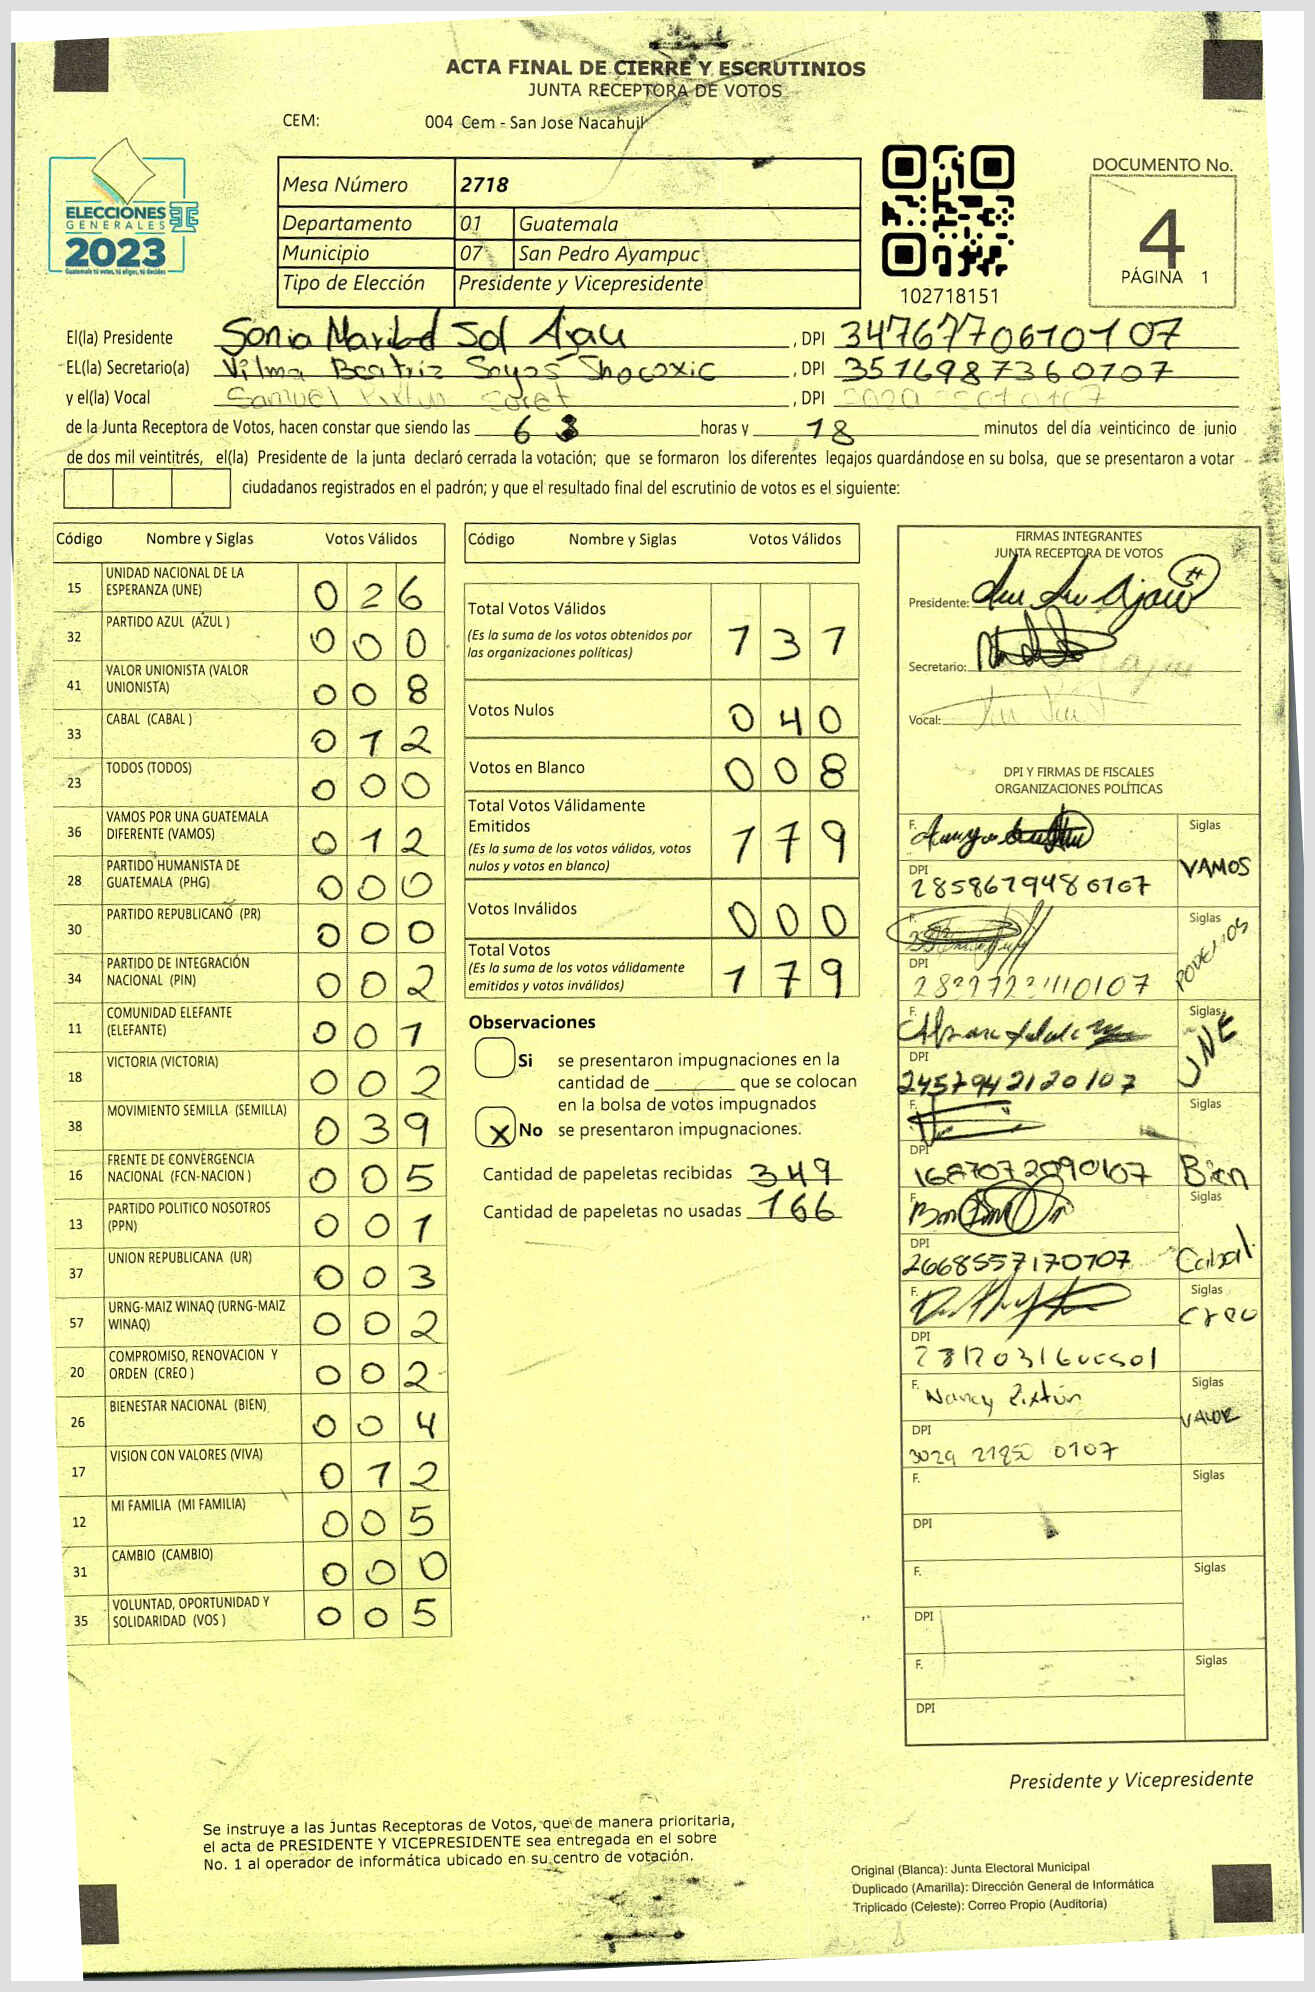 ACTA FINAL DE CIERRE Y ESCRUTINIOS
JUNTA RECEPTORA DE VOTOS
CEM: 004 Cem - San Jose Nacahuil
ELECCIONES
GENERALES
2023
Guatemala tú votas, tú eliges, tú decides
Mesa Número 2718
Departamento 01 Guatemala
Municipio 07 San Pedro Ayampuc
Tipo de Elección Presidente y Vicepresidente
102718151
DOCUMENTO No.
4
PÁGINA 1
El(la) Presidente Sonia Maribel Sol Ajau , DPI 3476770610107
EL(la) Secretario(a) Vilma Beatriz Soyos Shocoxic , DPI 3516987360107
y el(la) Vocal Samuel Pixtun , DPI
de la Junta Receptora de Votos, hacen constar que siendo las 6 horas y 18 minutos del día veinticinco de junio
de dos mil veintitrés, el(la) Presidente de la junta declaró cerrada la votación; que se formaron los diferentes legajos guardándose en su bolsa, que se presentaron a votar
ciudadanos registrados en el padrón; y que el resultado final del escrutinio de votos es el siguiente:
Código Nombre y Siglas Votos Válidos
15 UNIDAD NACIONAL DE LA ESPERANZA (UNE) 026
32 PARTIDO AZUL (AZUL ) 000
41 VALOR UNIONISTA (VALOR UNIONISTA) 008
33 CABAL (CABAL ) 012
23 TODOS (TODOS) 000
36 VAMOS POR UNA GUATEMALA DIFERENTE (VAMOS) 012
28 PARTIDO HUMANISTA DE GUATEMALA (PHG) 000
30 PARTIDO REPUBLICANO (PR) 000
34 PARTIDO DE INTEGRACIÓN NACIONAL (PIN) 002
11 COMUNIDAD ELEFANTE (ELEFANTE) 001
18 VICTORIA (VICTORIA) 002
38 MOVIMIENTO SEMILLA (SEMILLA) 039
16 FRENTE DE CONVERGENCIA NACIONAL (FCN-NACION ) 005
13 PARTIDO POLITICO NOSOTROS (PPN) 001
37 UNION REPUBLICANA (UR) 003
57 URNG-MAIZ WINAQ (URNG-MAIZ WINAQ) 002
20 COMPROMISO, RENOVACION Y ORDEN (CREO ) 002
26 BIENESTAR NACIONAL (BIEN) 004
17 VISION CON VALORES (VIVA) 012
12 MI FAMILIA (MI FAMILIA) 005
31 CAMBIO (CAMBIO) 000
35 VOLUNTAD, OPORTUNIDAD Y SOLIDARIDAD (VOS ) 005
Código Nombre y Siglas Votos Válidos
Total Votos Válidos 131
(Es la suma de los votos obtenidos por
las organizaciones políticas)
Votos Nulos 040
Votos en Blanco 008
Total Votos Válidamente
Emitidos 179
(Es la suma de los votos válidos, votos
nulos y votos en blanco)
Votos Inválidos 000
Total Votos 179
(Es la suma de los votos válidamente
emitidos y votos inválidos)
Observaciones
Si se presentaron impugnaciones en la
cantidad de ________ que se colocan
en la bolsa de votos impugnados
X No se presentaron impugnaciones.
Cantidad de papeletas recibidas 349
Cantidad de papeletas no usadas 166
FIRMAS INTEGRANTES
JUNTA RECEPTORA DE VOTOS
Presidente:
Secretario:
Vocal:
DPI Y FIRMAS DE FISCALES
ORGANIZACIONES POLÍTICAS
F. Siglas VAMOS
DPI 2858679480107
F. Siglas PODEMOS
DPI
F. Siglas UNE
DPI 2457942120107
F. Siglas Bien
DPI 1687072090107
F. Siglas Cabal
DPI 2668557170107
F. Siglas Creo
DPI
F. Nancy Pixtún Siglas VALOR
DPI 3029 21850 0107
F. Siglas
DPI
F. Siglas
DPI
F. Siglas
DPI
Presidente y Vicepresidente
Se instruye a las Juntas Receptoras de Votos, que de manera prioritaria,
el acta de PRESIDENTE Y VICEPRESIDENTE sea entregada en el sobre
No. 1 al operador de informática ubicado en su centro de votación.
Original (Blanca): Junta Electoral Municipal
Duplicado (Amarilla): Dirección General de Informática
Triplicado (Celeste): Correo Propio (Auditoría)